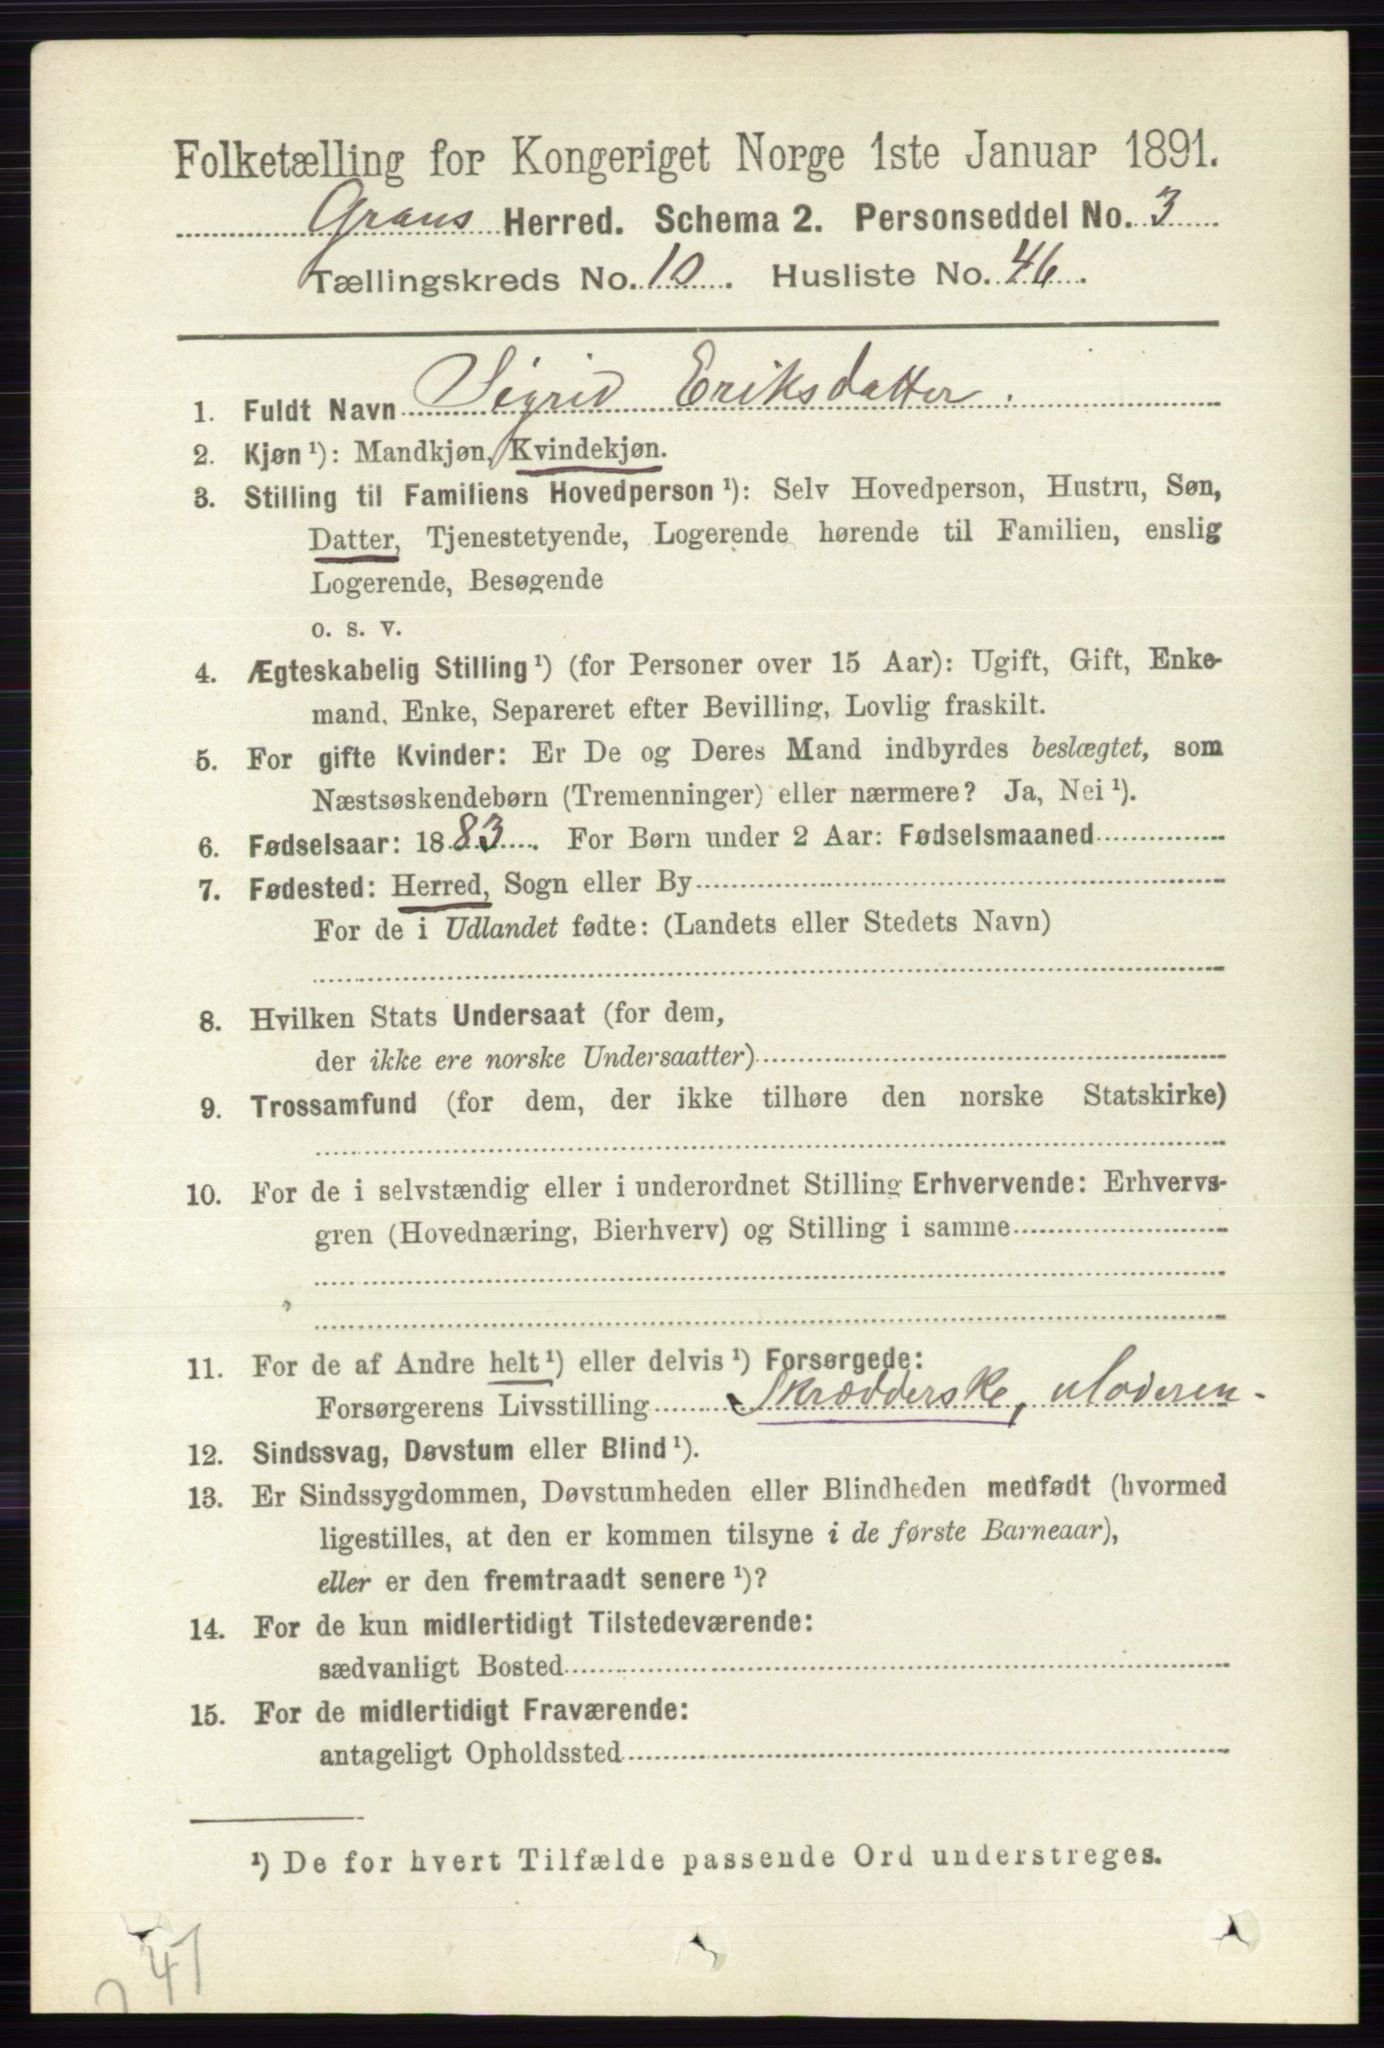 Folketælling for Kongeriget Norge 1ste Januar 1891.
Grans Herred. Schema 2. Personseddel No. 3
Tællingskreds No. 10. Husliste No. 46.
1. Fuldt Navn Sigrid Eriksdatter.
2. Kjøn ¹): Mandkjøn, Kvindekjøn.
3. Stilling til Familiens Hovedperson ¹): Selv Hovedperson, Hustru, Søn,
Datter, Tjenestetyende, Logerende hørende til Familien, enslig
Logerende, Besøgende
o. s. v.
4. Ægteskabelig Stilling ¹) (for Personer over 15 Aar): Ugift, Gift, Enke-
mand, Enke, Separeret efter Bevilling, Lovlig fraskilt.
5. For gifte Kvinder: Er De og Deres Mand indbyrdes beslægtet, som
Næstsøskendebørn (Tremenninger) eller nærmere? Ja, Nei ¹).
6. Fødselsaar: 1883. For Børn under 2 Aar: Fødselsmaaned
7. Fødested: Herred, Sogn eller By
For de i Udlandet fødte: (Landets eller Stedets Navn)
8. Hvilken Stats Undersaat (for dem,
der ikke ere norske Undersaatter)
9. Trossamfund (for dem, der ikke tilhøre den norske Statskirke)
10. For de i selvstændig eller i underordnet Stilling Erhvervende: Erhvervs-
gren (Hovednæring, Bierhverv) og Stilling i samme
11. For de af Andre helt ¹) eller delvis ¹) Forsørgede:
Forsørgerens Livsstilling Skrædderske, Moderen-
12. Sindssvag, Døvstum eller Blind ¹).
13. Er Sindssygdommen, Døvstumheden eller Blindheden medfødt (hvormed
ligestilles, at den er kommen tilsyne i de første Barneaar),
eller er den fremtraadt senere ¹)?
14. For de kun midlertidigt Tilstedeværende:
sædvanligt Bosted
15. For de midlertidigt Fraværende:
antageligt Opholdssted
¹) De for hvert Tilfælde passende Ord understreges.
247